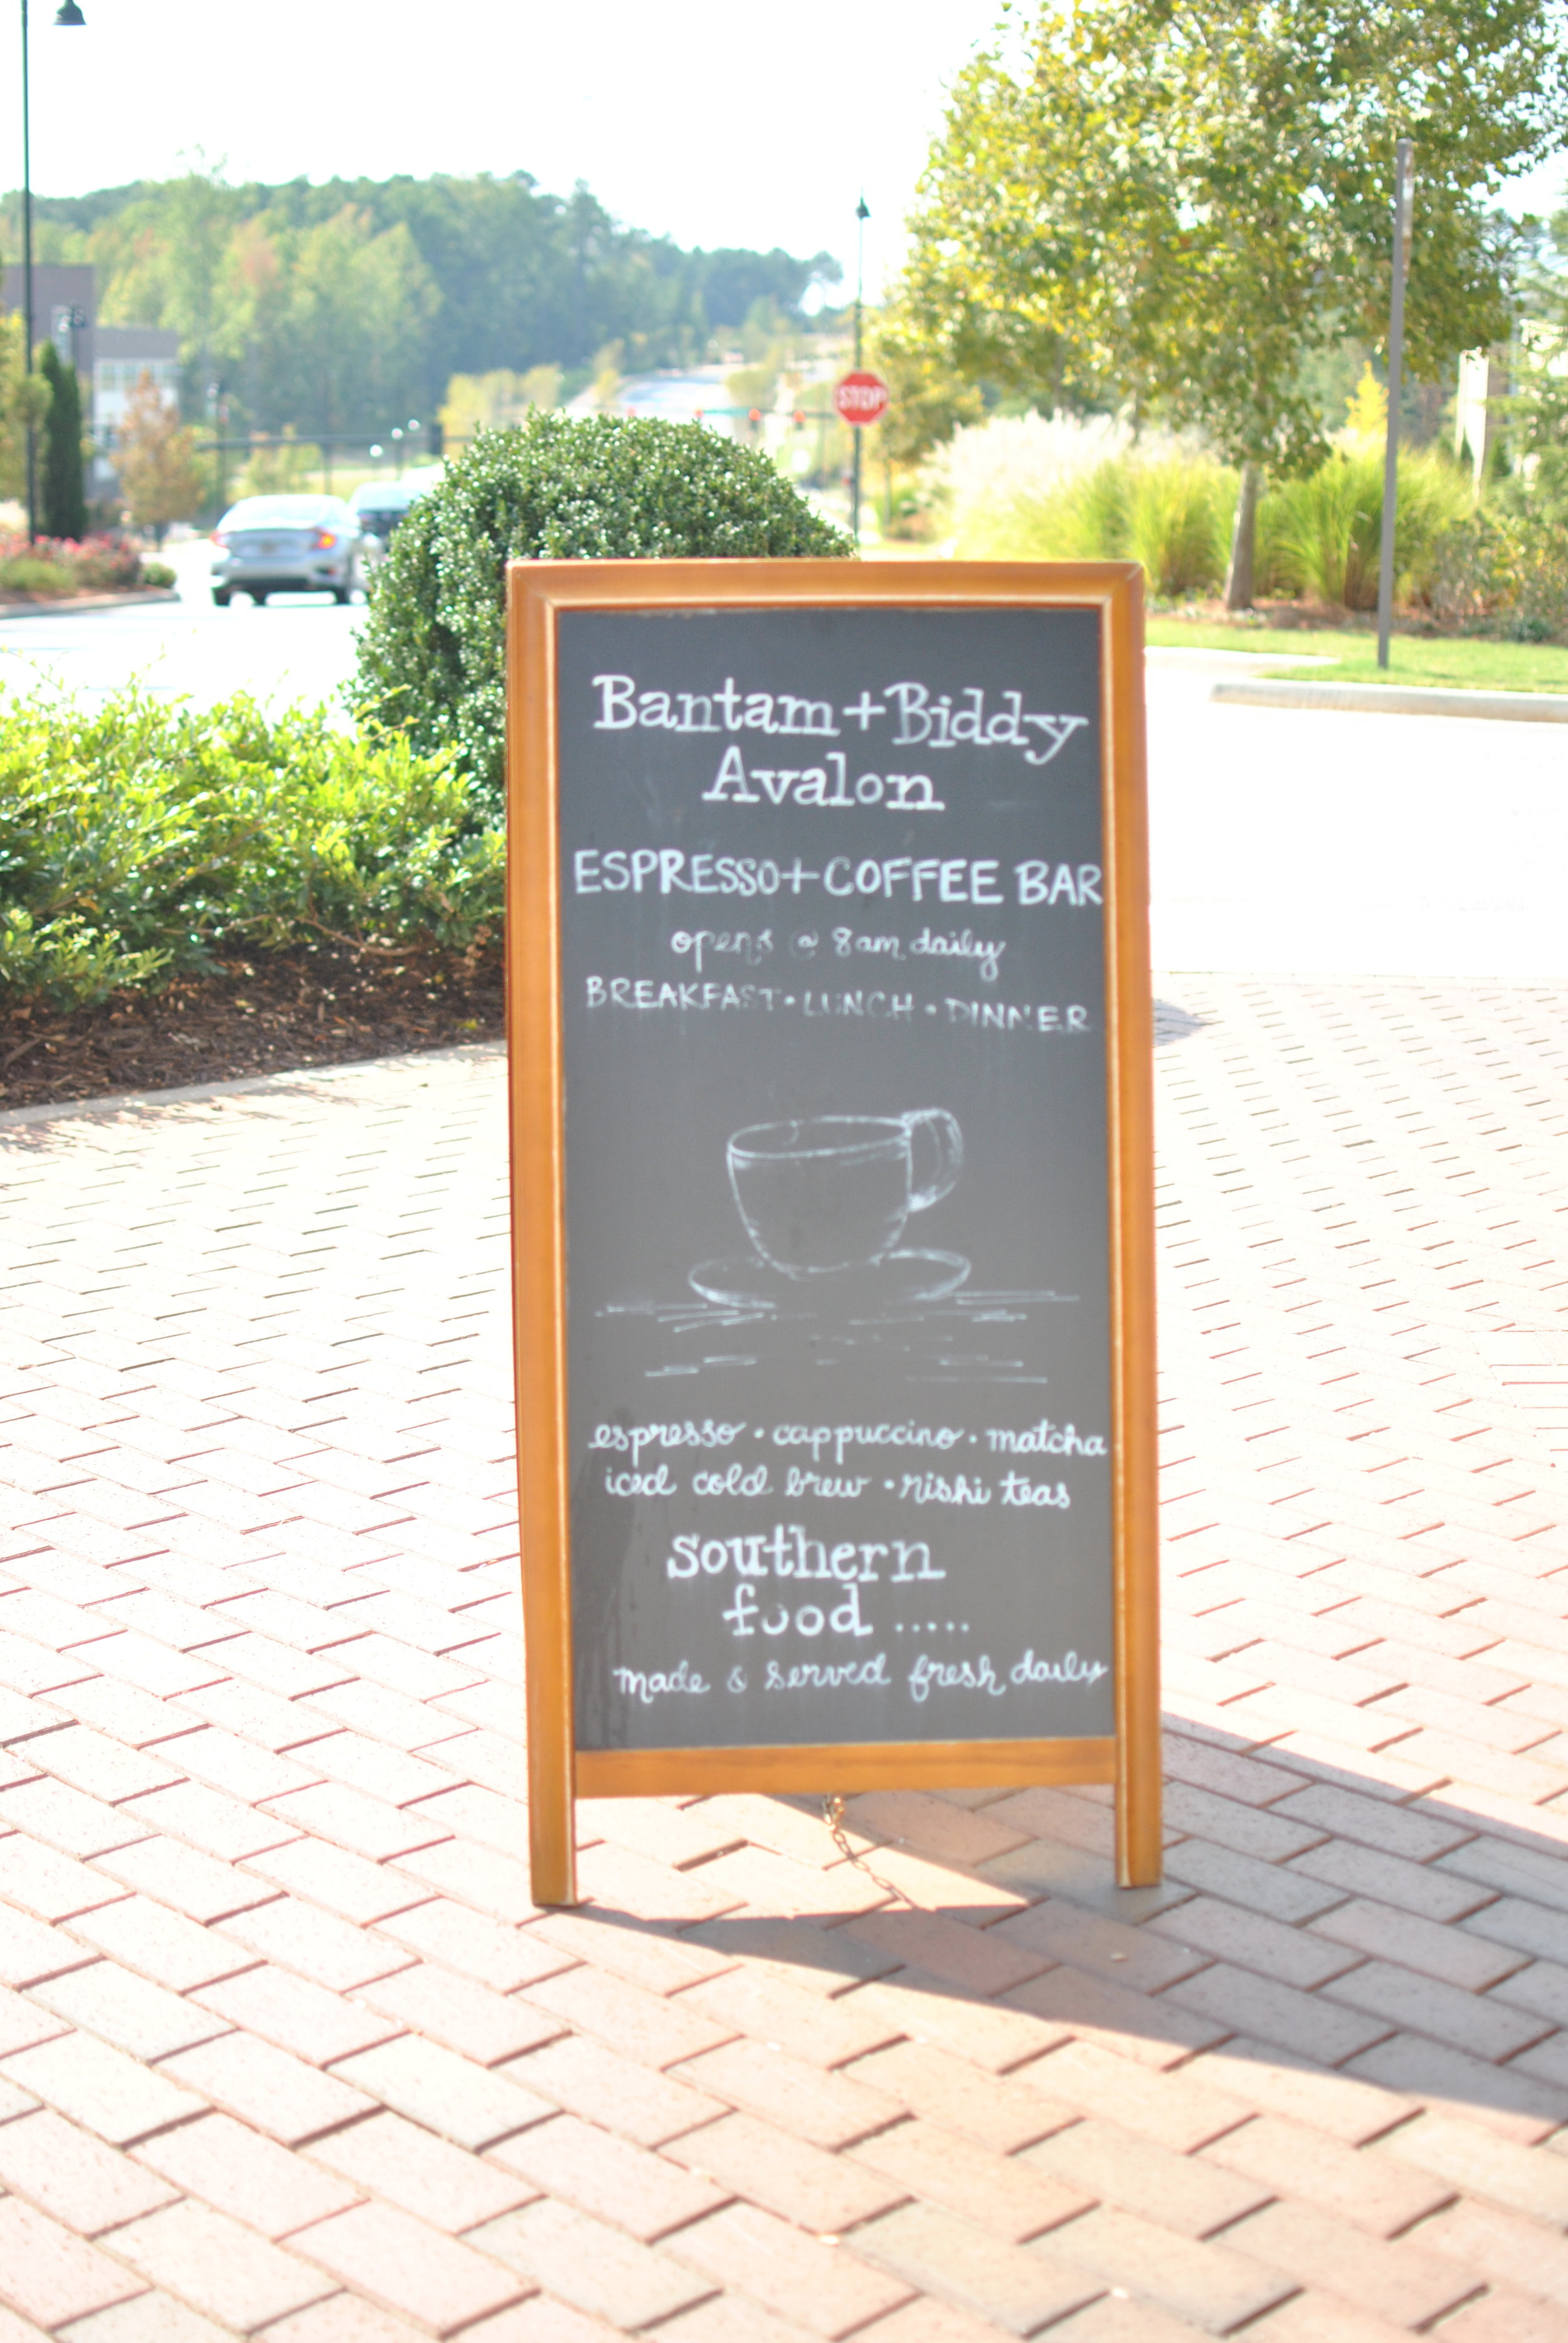 STOP
Bantam+Biddy
Avalon
ESPRESSO+COFFEE BAR
opens @ 8am daily
BREAKFAST · LUNCH · DINNER
espresso · cappuccino · matcha
iced cold brew · rishi teas
southern
food .....
made & served fresh daily